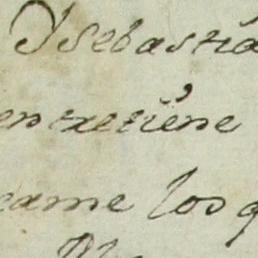 Dsebastia
entretiene
came los q